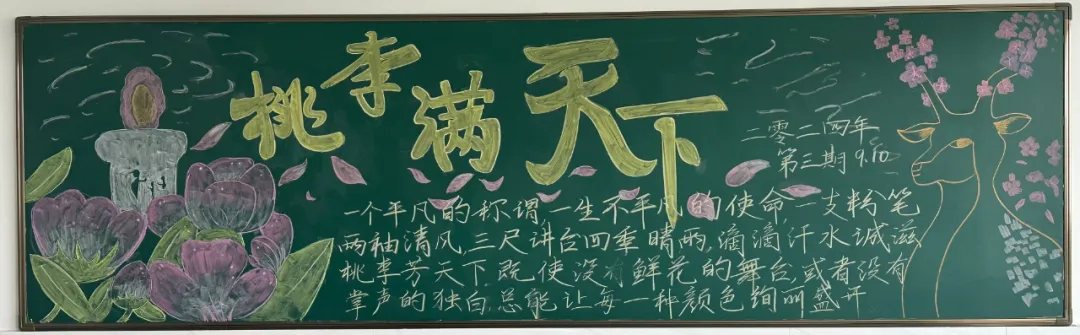 桃李满天下
二零二四年
第三期 9.10
一个平凡的称谓,一生不平凡的使命,一支粉笔
两袖清风,三尺讲台四季晴雨,滴滴汗水诚滋
桃李芳天下,既使没有鲜花的舞台,或者没有
掌声的独白,总能让每一种颜色绚丽盛开